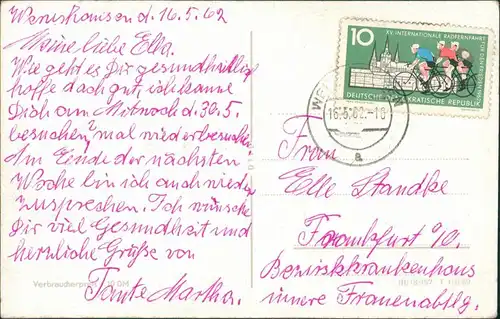 Wernshausen d. 16.5.62
Meine liebe Elka.
Wie geht es Dir gesundheitlig
hoffe doch gut, ich kanne
Dich am Mitwoch d. 30.5.
besuchen? mal wiederbesuchen.
Am Ende der nächsten
Woche bin ich auch wieder
zusprechen. Ich wünsche
Dir viel Gesundheit und
herzliche Grüße von
Tante Martha.
Verbraucherpreis DM
10
XV. INTERNATIONALE RADFERNFAHRT
FÜR DEN FRIEDEN
DEUTSCHE DEMOKRATISCHE REPUBLIK
16.5.62.-18
a
Frau
Elke Standke
Frankfurt a/O.
Bezirkskrankenhaus
innere Frauenabtlg.